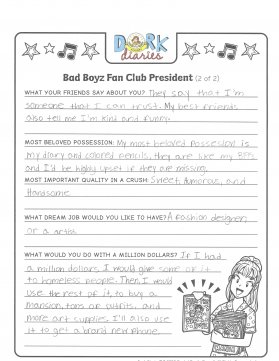 DORK
diaries
Bad Boyz Fan Club President (2 of 2)
WHAT YOUR FRIENDS SAY ABOUT YOU? They say that I'm
someone that I can trust. My best friends
also tell me I'm kind and funny.
MOST BELOVED POSSESSION: My most beloved possesion is
my diary and colored pencils, they are like my BFFs
and I'd be highly upset if they are missing.
MOST IMPORTANT QUALITY IN A CRUSH: Sweet, Humorous, and
Handsome
WHAT DREAM JOB WOULD YOU LIKE TO HAVE? A fashion designer
or a artist
WHAT WOULD YOU DO WITH A MILLION DOLLARS? If I had
a million dollars, I would give some of it
to homeless people. Then, I would
use the rest of it, to buy a
mansion, tons of outfits, and
more art supplies. I'll also use
it to get a brand new phone.